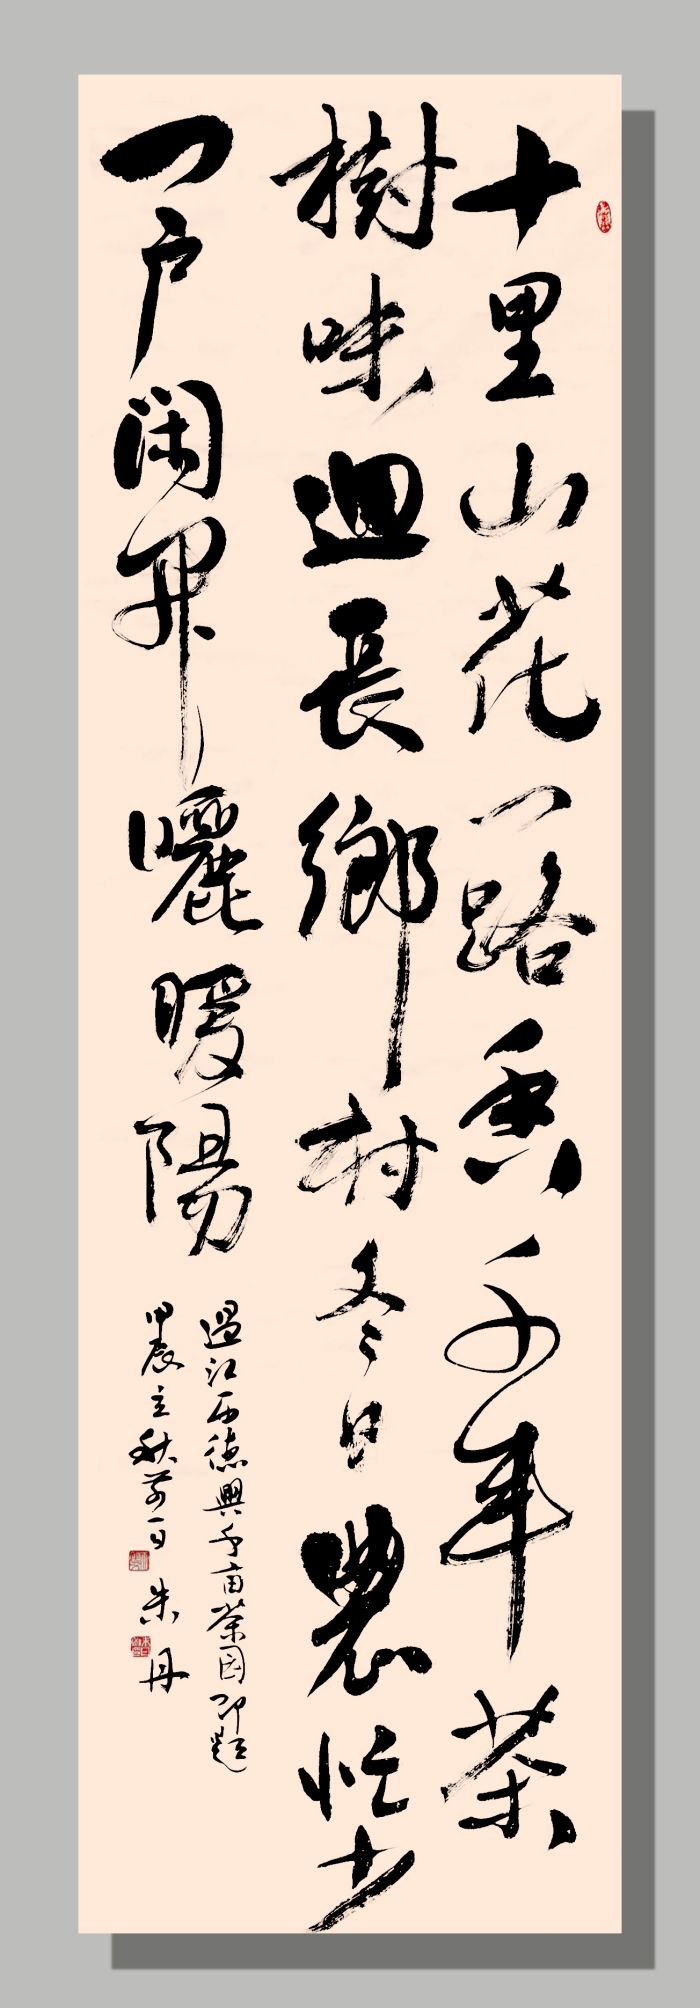 十里山花一路香千年茶
樹味迴長鄉村冬日農忙少
一户闲開曬暖陽
過江西德興千亩茶园即题
甲辰立秋前一日 朱丹